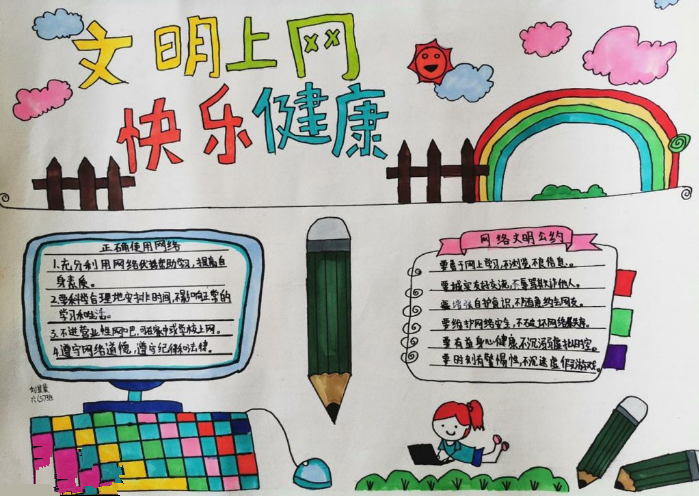 文明上网
快乐健康
正确使用网络
1.充分利用网络优势帮助学习，提高自
身素质。
2.要科学合理地安排时间，不影响正常的
学习和生活。
3.不进营业性网吧，可在家中或学校上网。
4.遵守网络道德，遵守纪律和法律。
网络文明公约
要善于网上学习，不浏览不良信息。
要诚实友好交流，不辱骂欺诈他人。
要增强自护意识，不随意约会网友。
要维护网络安全，不破坏网络秩序。
要有益身心健康，不沉溺虚拟时空。
要时刻有警惕性，不沉迷虚作文游戏。